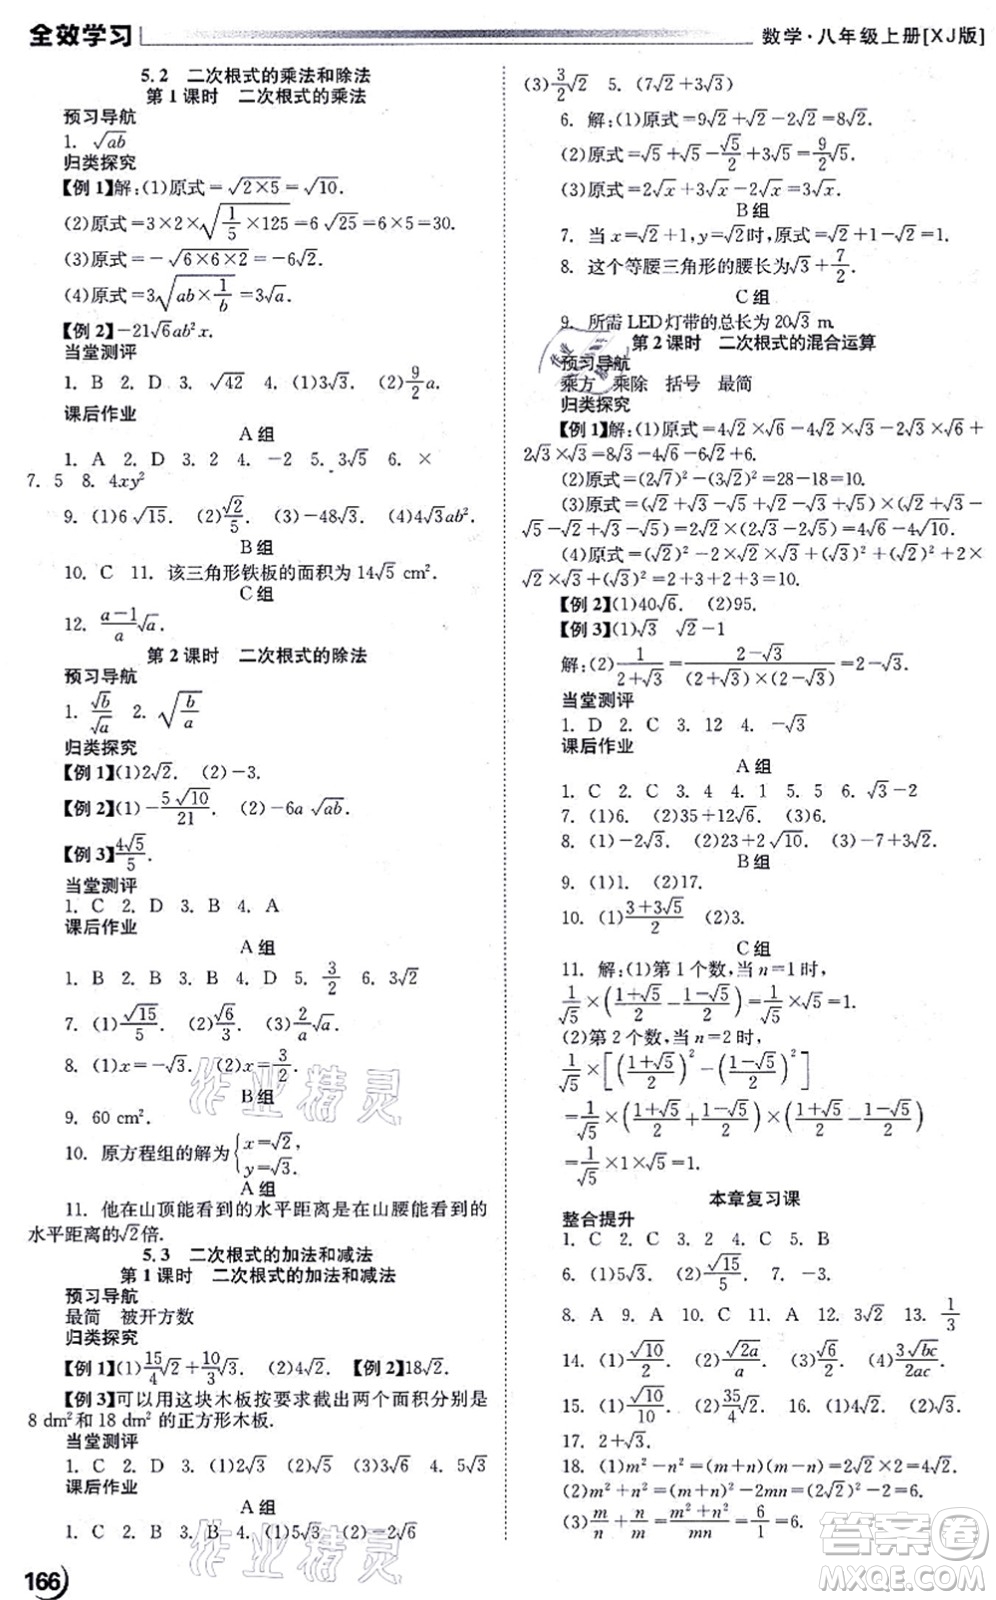 全效学习
数学·八年级上册[XJ版]
5.2 二次根式的乘法和除法
第1课时 二次根式的乘法
预习导航
1. √ab
归类探究
【例1】解:(1)原式=√(2×5)=√10.
(2)原式=3×2×√(1/5×125)=6√25=6×5=30.
(3)原式=-√(6×6×2)=-6√2.
(4)原式=3√(ab×1/b)=3√a.
【例2】-21√6ab²x.
当堂测评
1. B 2. D 3. √42 4. (1)3√3. (2)9/2 a.
课后作业
A组
1. A 2. D 3. 2 4. -2 5. 3√5 6. ×
7. 5 8. 4xy²
9. (1)6√15. (2)√2/5. (3)-48√3. (4)4√3ab².
B组
10. C 11. 该三角形铁板的面积为14√5 cm².
C组
12. (a-1)/a √a.
第2课时 二次根式的除法
预习导航
1. √b/√a 2. √(b/a)
归类探究
【例1】(1)2√2. (2)-3.
【例2】(1)-5√10/21 (2)-6a√ab.
【例3】4√5/5.
当堂测评
1. C 2. D 3. B 4. A
课后作业
A组
1. B 2. B 3. B 4. D 5. 3/2 6. 3√2
7. (1)√15/5. (2)√6/3. (3)2/a √a.
8. (1)x=-√3. (2)x=3/2.
B组
9. 60 cm².
10. 原方程组的解为{x=√2,
y=√3.
A组
11. 他在山顶能看到的水平距离是在山腰能看到的
水平距离的√2倍.
5.3 二次根式的加法和减法
第1课时 二次根式的加法和减法
预习导航
最简 被开方数
归类探究
【例1】(1)15/4√2+10/3√3. (2)4√3. 【例2】18√2.
【例3】可以用这块木板按要求截出两个面积分别是
8 dm²和18 dm²的正方形木板.
当堂测评
1. C 2. D 3. (1)2√3 (2)√5 (3)3√6 4. 5√3
课后作业
A组
1. C 2. B 3. B 4. (1)5√3 (2)-√6
166
(3)3/2√2 5. (7√2+3√3)
6. 解:(1)原式=9√2+√2-2√2=8√2.
(2)原式=√5+√5-√5/2+3√5=9/2√5.
(3)原式=2√x+√x-2√x=√x.
B组
7. 当x=√2+1,y=√2时,原式=√(x-y)²=1.
8. 这个等腰三角形的腰长为√3+7/2.
C组
9. 所需LED灯带的总长为20√3 m.
第2课时 二次根式的混合运算
预习导航
乘方 乘除 括号 最简
归类探究
【例1】解:(1)原式=4√2×√6-4√2×√3+√2×3√2=8√3-4√6+6.
(2)原式=(2√7)²-(3√2)²=28-18=10.
(3)原式=(√2+√3-√5+√2-√3+√5)×(√2+√3-
√5-√2+√3-√5)=2√2×(2√3-2√5)=4√6-4√10.
(4)原式=(√2)²-2√2×√2+(√2)²+(√2)²+2×
√2×√5+(√5)²+3=10.
【例2】(1)40√6. (2)95.
【例3】(1)√3 √2-1
解:(2)1/(2+√3)=(2-√3)/((2+√3)×(2-√3))=2-√3.
当堂测评
1. D 2. C 3. 12 4. -√3
课后作业
A组
1. C 2. C 3. 4 4. 1 5. 5 6. √3-2
7. (1)6. (2)35+12√6. (3)6.
8. (1)-√2. (2)23+2√10. (3)-7+3√2.
B组
9. (1)1. (2)17.
10. (1)(3+3√5)/2. (2)3.
C组
11. 解:(1)第1个数,当n=1时,
1/√5×((1+√5)/2-(1-√5)/2)=1/√5×√5=1.
(2)第2个数,当n=2时,
1/√5×[((1+√5)/2)²-((1-√5)/2)²]
=1/√5×((1+√5)/2+(1-√5)/2)×((1+√5)/2-(1-√5)/2)
=1/√5×1×√5=1.
本章复习课
整合提升
1. C 2. C 3. C 4. C 5. B
6. (1)5√3. (2)√15/5. 7. -3.
8. A 9. A 10. C 11. A 12. 3√2 13. 1/3
14. (1)√10/2. (2)√2a/a. (3)√6/2. (4)3√bc/2ac
15. (1)√10/10. (2)35/4√2 16. (1)2√3 (2)√2
17. 2+√3.
18. (1)m²-n²=(m+n)(m-n)=4√2×2=8√2.
(2)m²+n²=(m-n)²+2mn=4+2=6.
(3)m/n+n/m=(m²+n²)/mn=6/1=6.
作业精灵
作业精灵
答案圈
MXQE.COM